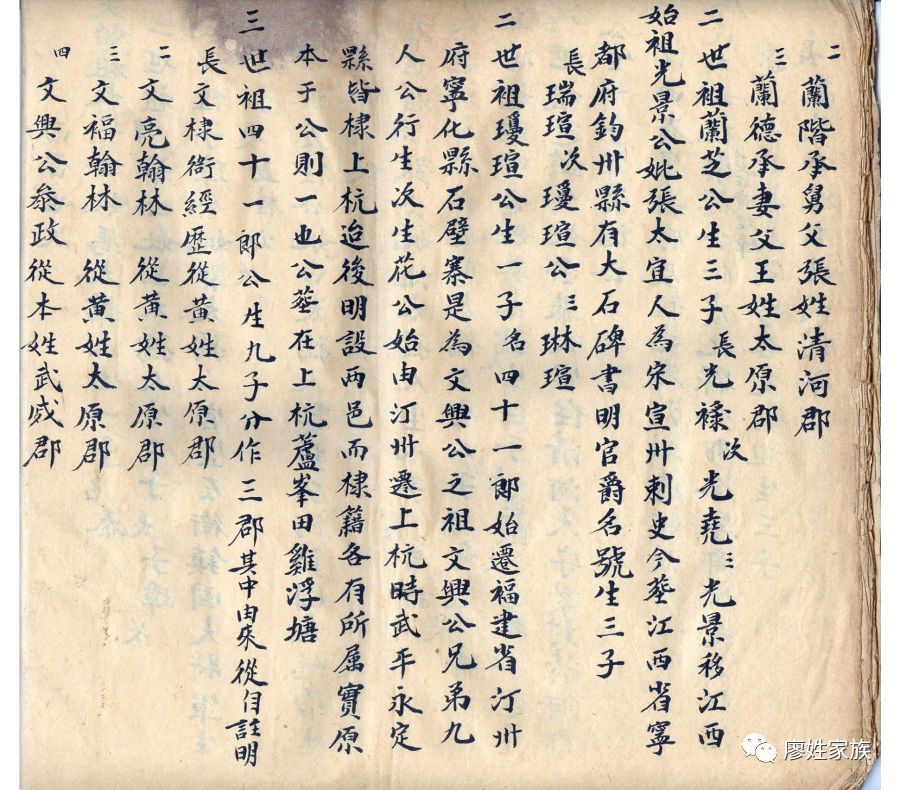 二 蘭階承舅父張姓清河郡
三 蘭德承妻父王姓太原郡
二世祖蘭芝公生三子 長光祿 次光堯 三光景移江西
始祖光景公妣張太宜人為宋宣卅刺史今塟江西省寧
都府鈞卅縣有大石碑書明官爵名號生三子
長瑞瑄 次瓊瑄公 三琳瑄
二世祖瓊瑄公生一子名四十一郎始遷福建省汀卅
府寧化縣石壁寨是為文興公之祖文興公兄弟九
人公行生次生花公始由汀卅遷上杭時武平永定
縣皆棣上杭迨後明設两邑而棣籍各有所属實原
本于公則一也公塟在上杭蘆峯田雞浮塘
三世祖四十一郎公生九子分作三郡其中由來從自註明
長文棣衛經歷從黃姓太原郡
二 文亮翰林 從黃姓太原郡
三 文福翰林 從黃姓太原郡
四 文興公叅政從本姓武威郡
廖姓家族